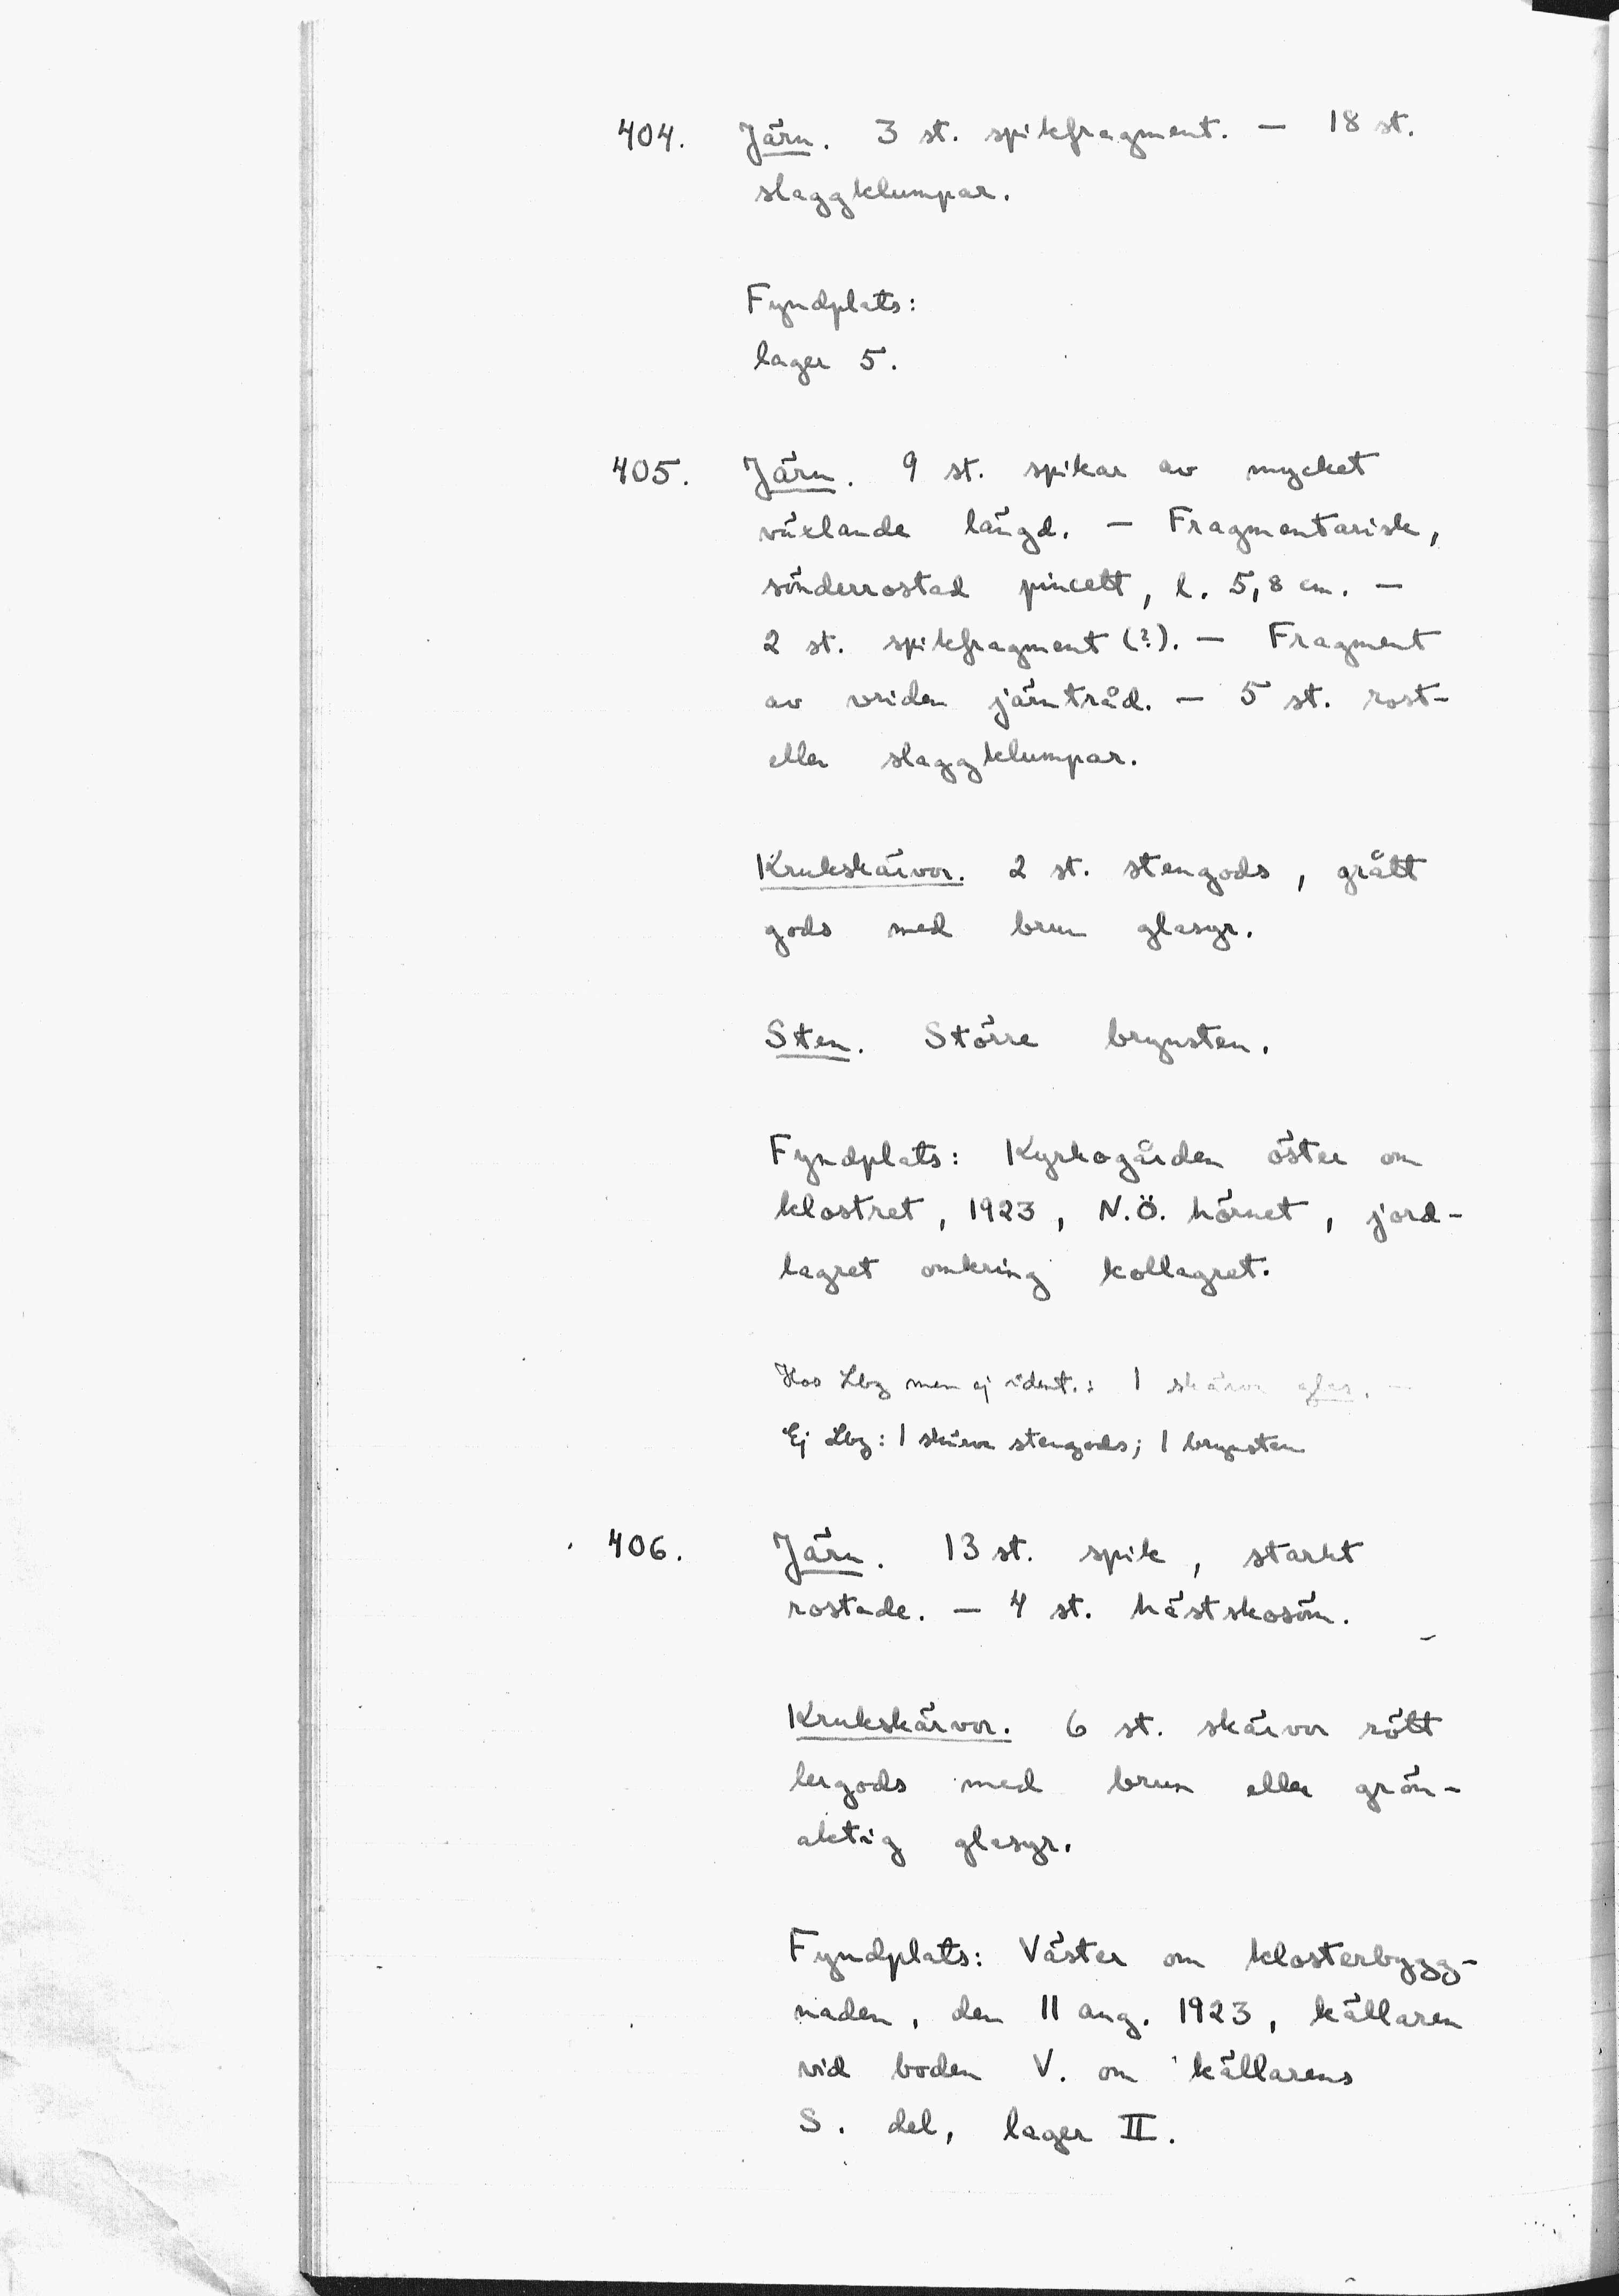 404. Järn. 3 st. spikfragment. — 18 st.
slaggklumpar.
Fyndplats:
lager 5.
405. Järn. 9 st. spikar av mycket
växlande längd. — Fragmentarisk,
sönderrostad pincett, l. 5,8 cm. —
2 st. spikfragment (?). — Fragment
av vriden järntråd. — 5 st. rost-
eller slaggklumpar.
Krukskärvor. 2 st. stengods, grått
gods med brun glasyr.
Sten. Större brynsten.
Fyndplats: Kyrkogården öster om
klostret, 1923, N.Ö. hörnet, jord-
lagret omkring kollagret.
Hos Lbg men ej ident.: 1 skärva —
Ej Lbg: 1 skärva stengods; 1 brynsten
406. Järn. 13 st. spik, starkt
rostade. — 4 st. hästskosöm.
Krukskärvor. 6 st. skärvor rött
lergods med brun eller grön-
aktig glasyr.
Fyndplats: Väster om klosterbygg-
naden, den 11 aug. 1923, källaren
vid boden V. om källarens
S. del, lager II.